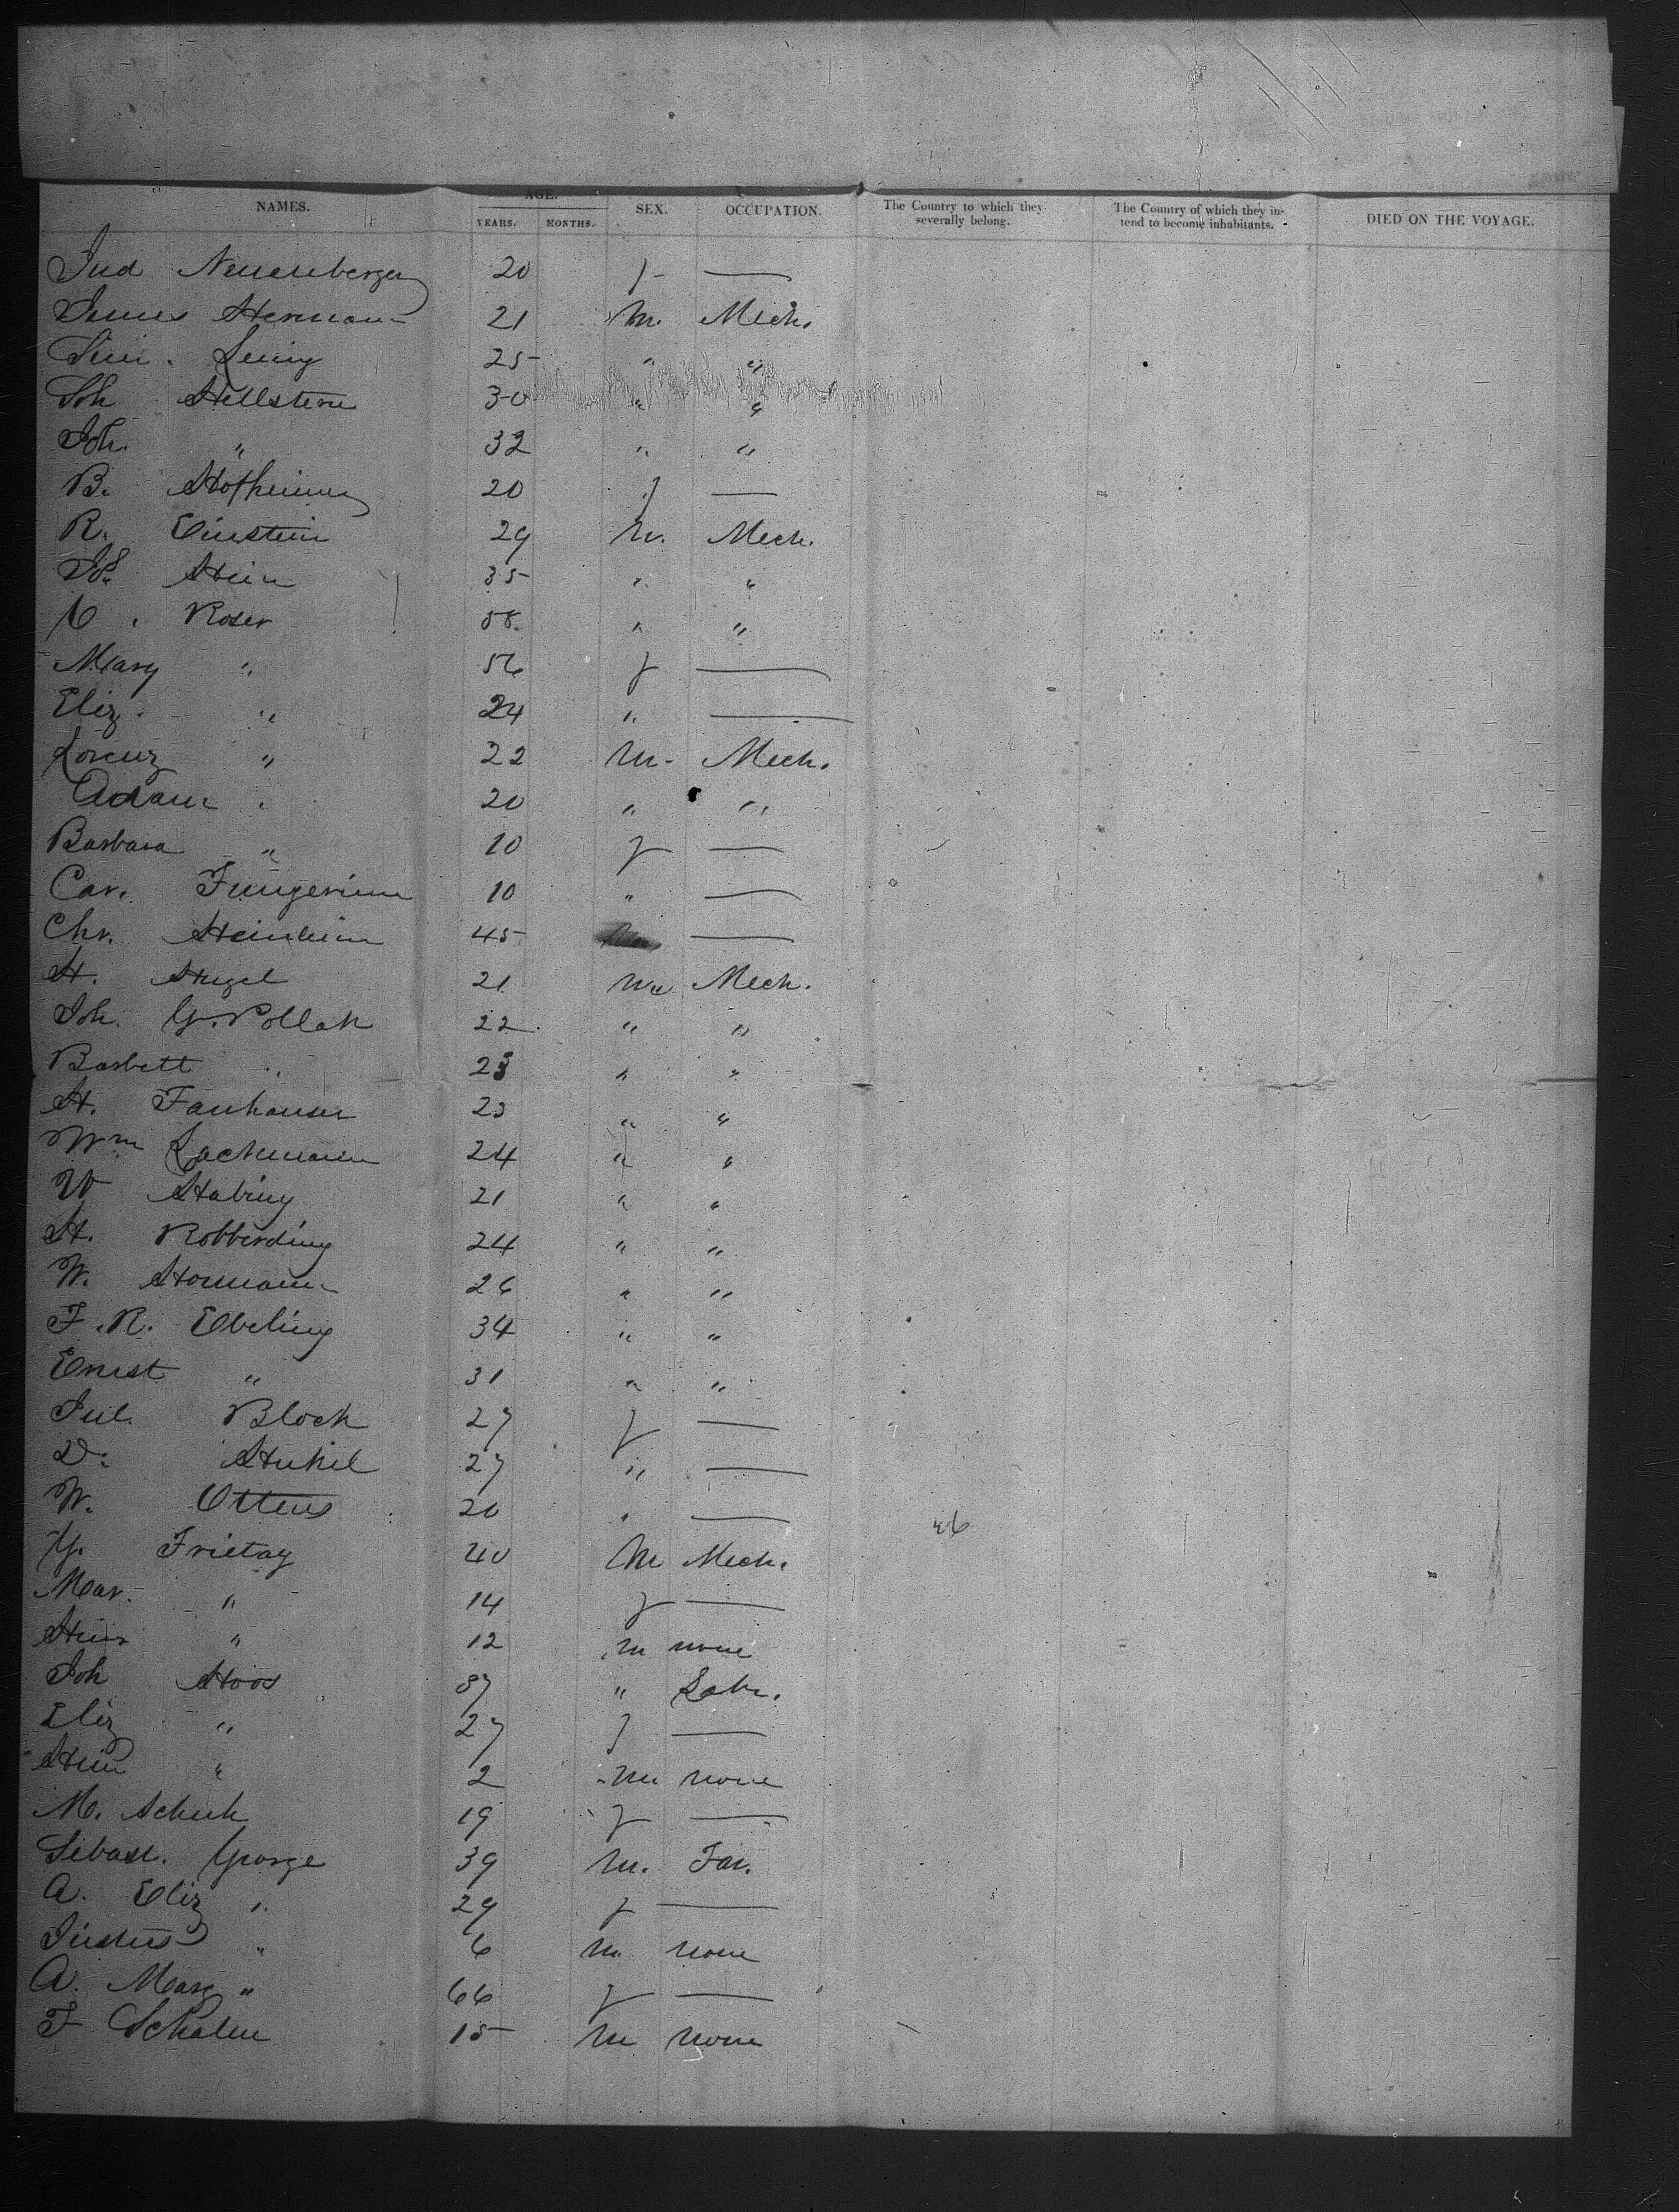 NAMES. AGE. YEARS. MONTHS. SEX. OCCUPATION. The Country to which they severally belong. The Country of which they intend to become inhabitants. DIED ON THE VOYAGE.
Jud Neuenberger 20 f —
Hermann 21 m. Mech.
25 " "
Joh Hellstern 30 " "
Joh. " 32 " "
B. 20 f —
R. Einstein 29 m. Mech.
35 " "
C. Roser 58. " "
Mary " 56 f —
Eliz. " 24 " —
Lorenz " 22 m. Mech.
Adam " 20 " "
Barbara " 10 f —
Car. 10 " —
Chr. 45 —
H. 21 m Mech.
Joh. G. Pollak 22 " "
Barbett " 23 " "
H. Fanhauser 23 " "
Wm Lachmann 24 " "
W Habing 21 " "
H. Robberding 24 " "
W. Hormann 26 " "
F. R. Ebeling 34 " "
Ernst " 31 " "
Jul. Block 27 f —
D. 27 " —
W. Ottens 20 " —
G. Frietag 40 m Mech.
Mar. " 14 f —
" 12 m none
Joh Hoos 37 " Labr.
Eliz " 27 f —
Hein " 2 m none
M. Schuh 19 f —
Sebast. George 39 m. Far.
A. Eliz " 29 f —
Justus " 6 m none
A. Marg " 66 f —
F 15 m none